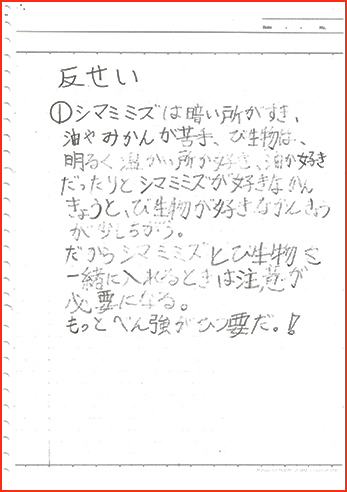 Date ・ ・ No.
反せい
①シマミミズは暗い所がすき、
油やみかんが苦手、び生物は、
明るく温かい所が好き、油が好き
だったりとシマミミズが好きなかん
きょうと、び生物が好きなかんきょう
が少しちがう。
だからシマミミズとび生物を
一緒に入れるときは注意が
必要になる。
もっとべん強がひつ要だ。!